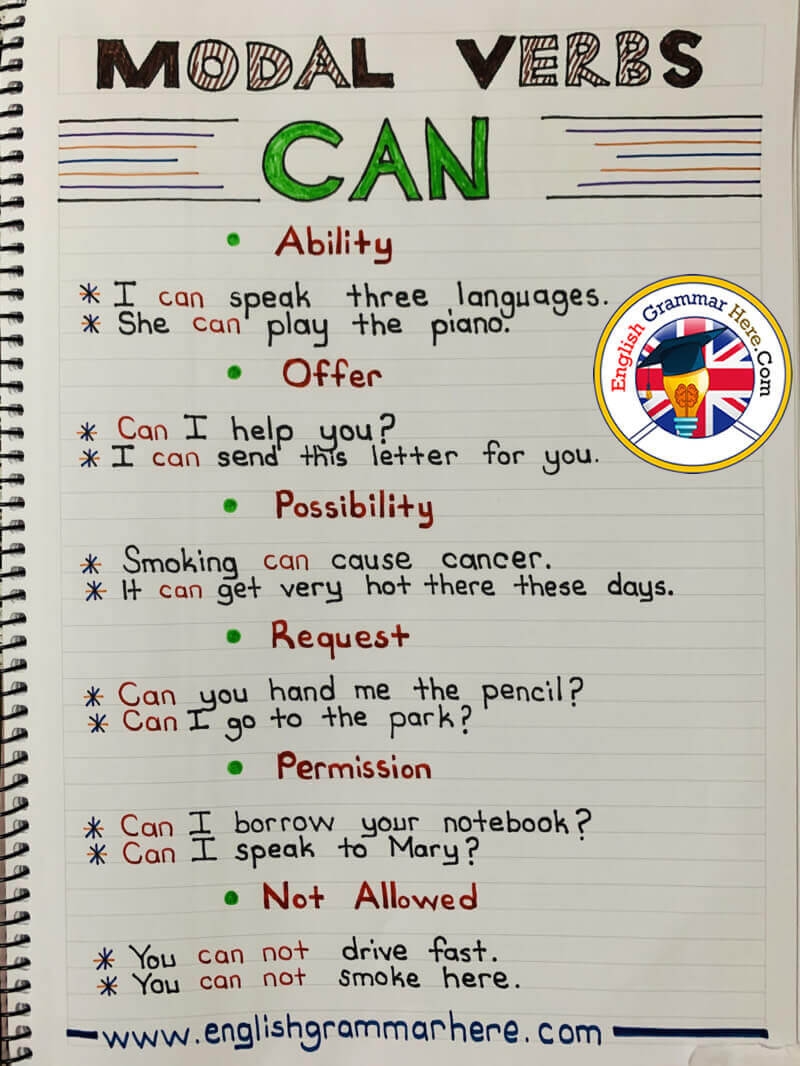 MODAL VERBS
CAN
Ability
I can speak three languages.
She can play the piano.
English Grammar Here.Com
Offer
Can I help you?
I can send this letter for you.
Possibility
Smoking can cause cancer.
It can get very hot there these days.
Request
Can you hand me the pencil?
Can I go to the park?
Permission
Can I borrow your notebook?
Can I speak to Mary?
Not Allowed
You can not drive fast.
You can not smoke here.
www.englishgrammarhere.com